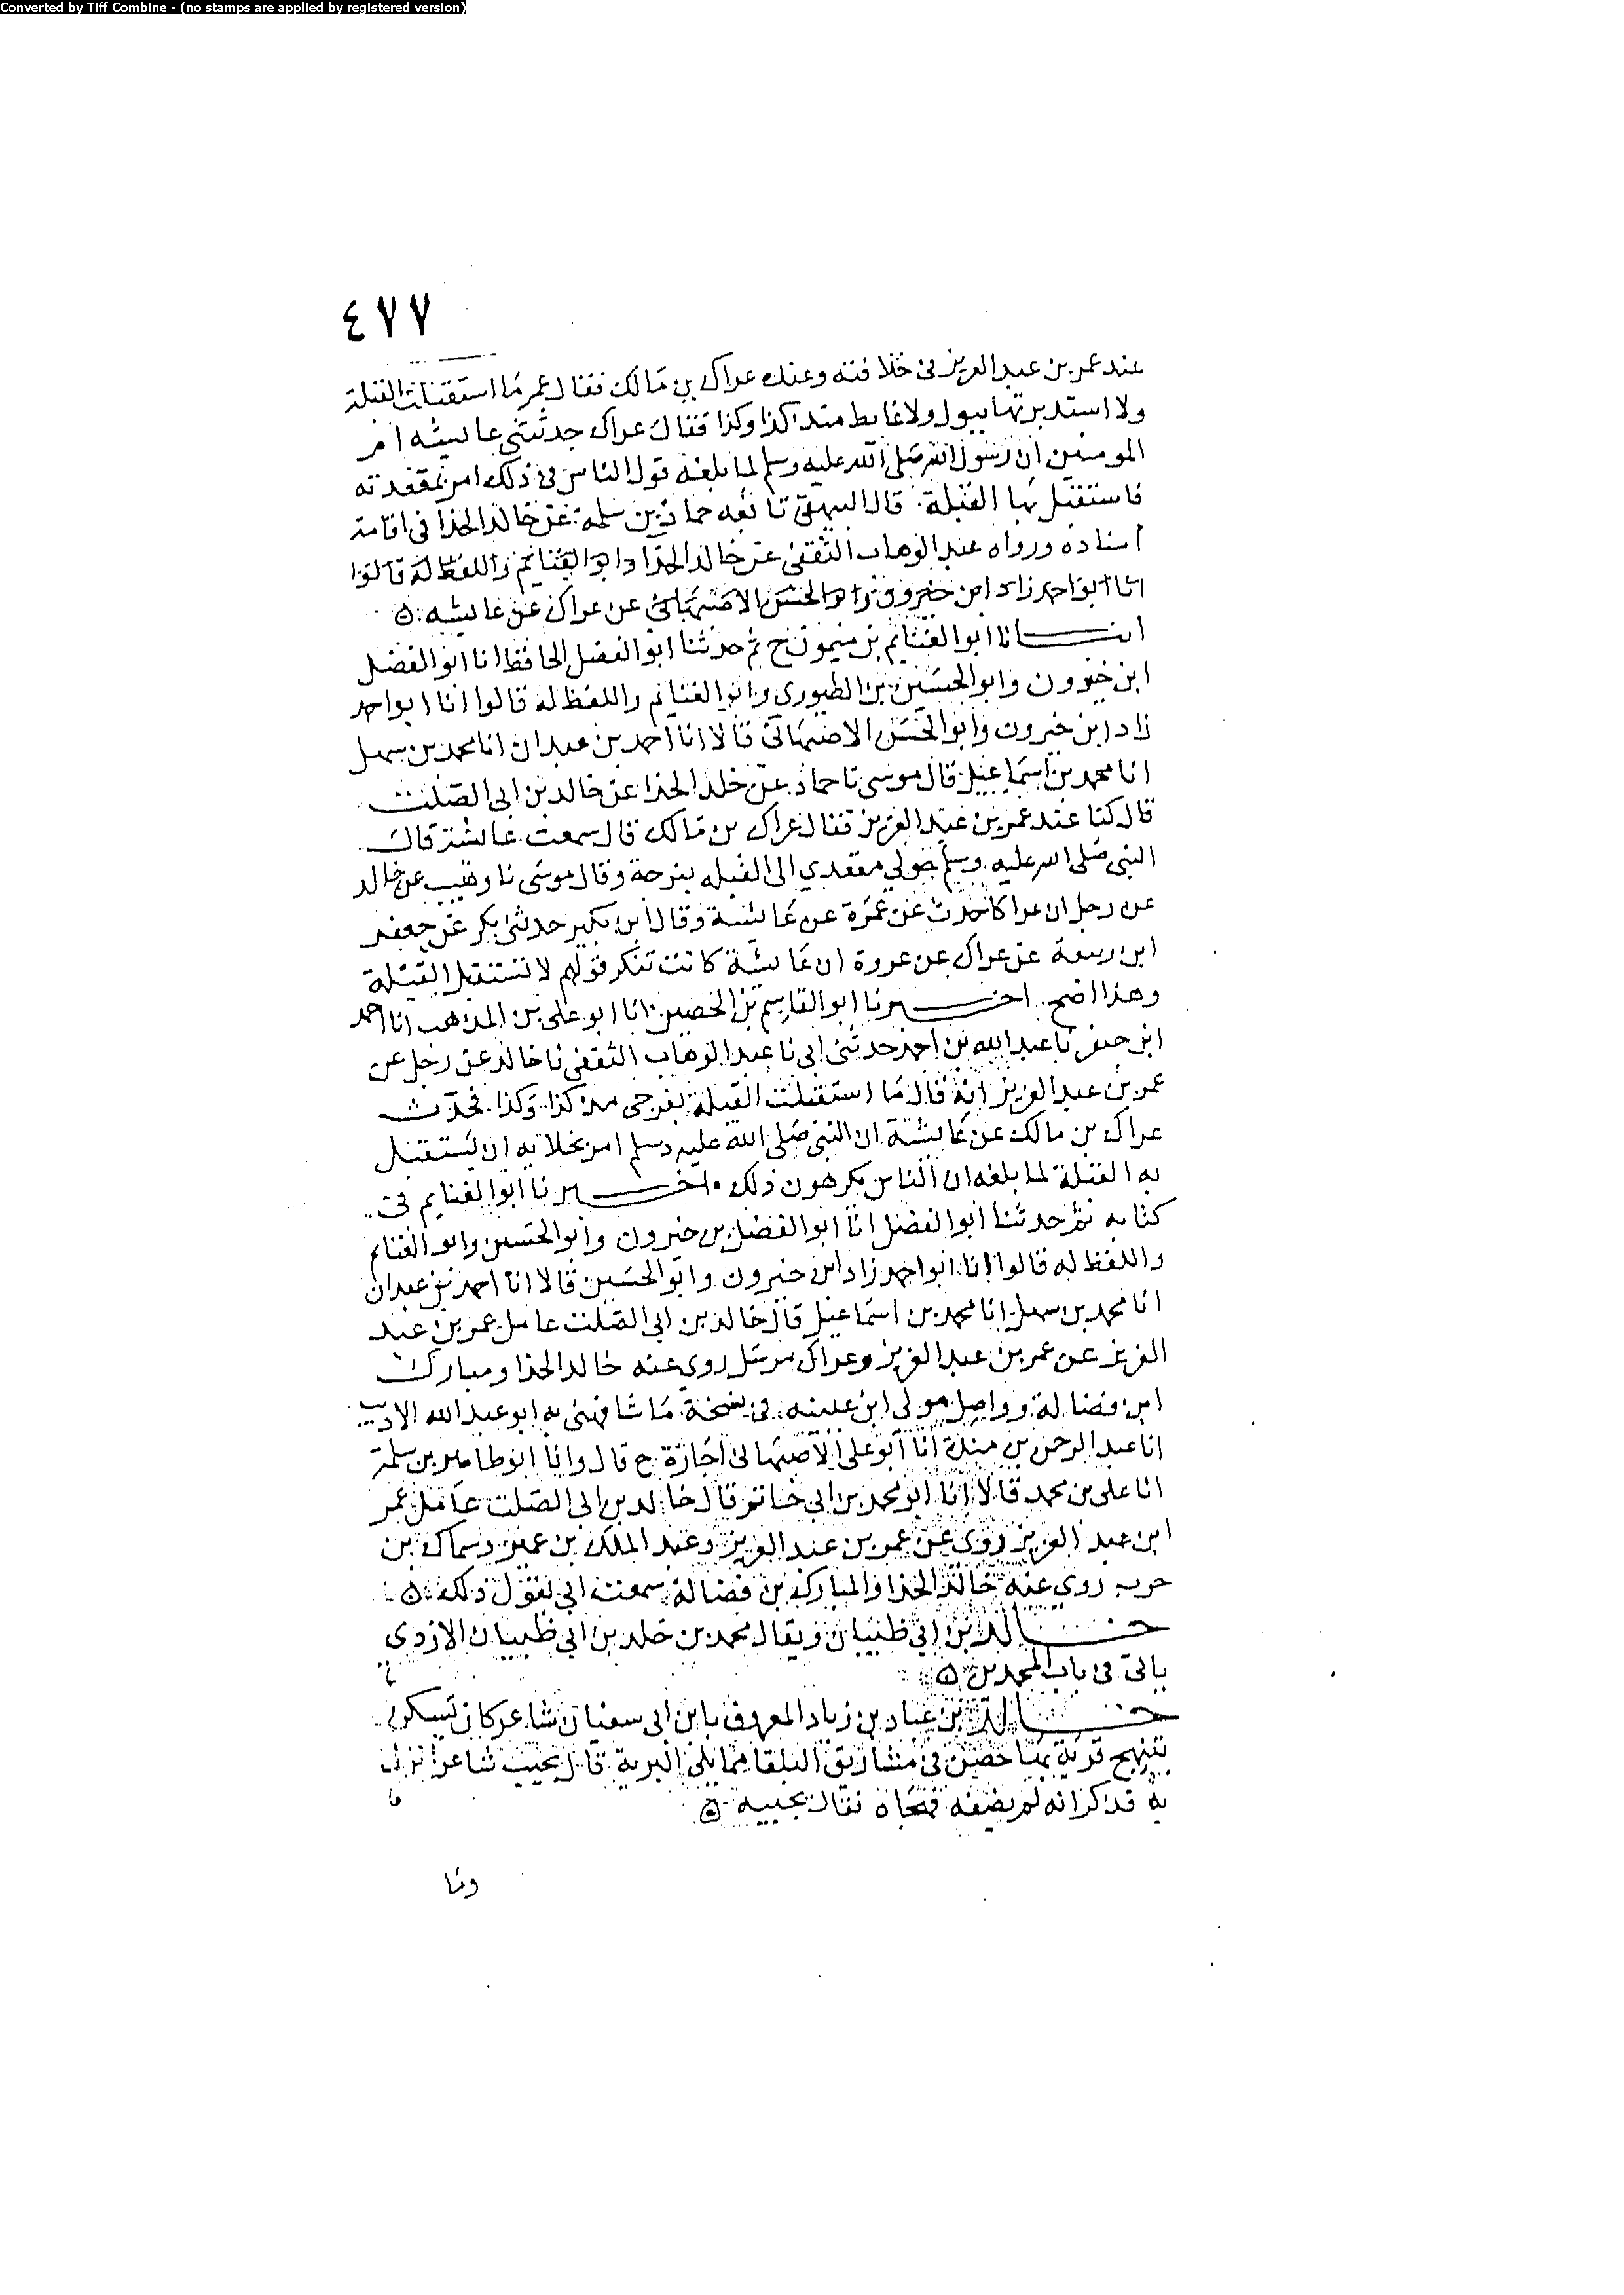 Converted by Tiff Combine - (no stamps are applied by registered version)
٤٧٧
عند عمر بن عبد العزيز في خلافته وعنده عراك بن مالك فقال عمر ما استقبلت القبلة
ولا استدبرتها ببول ولا غايط منذ كذا وكذا فقال عراك حدثتني عايشه ام
المومنين ان رسول الله صلى الله عليه وسلم لما بلغه قول الناس في ذلك امر بمقعدته
فاستقبل بها القبلة قال البيهقي تابعه حماد بن سلمة عن خالد الحذا في اقامة
اسناده ورواه عبد الوهاب الثقفي عن خالد الحذا وابو الغنايم واللفظ له قالوا
انا ابو احمد زاد ابن خيرون وابو الحسن الاصبهاني عن عراك عن عايشه ٥
انبانا ابو الغنايم بن ميمون ح ثم حدثنا ابو الفضل الحافظ انا ابو الفضل
ابن خيرون وابو الحسين بن الطيوري وابو الغنايم واللفظ له قالوا انا ابو احمد
زاد ابن خيرون وابو الحسن الاصبهاني قالا انا احمد بن عبدان انا محمد بن سهل
انا محمد بن اسماعيل قال موسى نا حماد عن خلد الحذا عن خالد بن ابي الصلت
قال كنا عند عمر بن عبد العزيز فقال عراك بن مالك قال سمعت عايشة قالت
النبي صلى الله عليه وسلم حولي مقعدي الى القبله بفرجة وقال موسى نا وهيب عن خالد
عن رجل ان عراكا حدث عن عمرة عن عايشة وقال ابن بكير حدثني بكر عن جعفر
ابن ربيعة عن عراك عن عروة ان عايشة كانت تنكر قولهم لا تستقبل القبلة
وهذا اصح اخبرنا ابو القاسم بن الحصين انا ابو علي بن المذهب انا احمد
ابن جعفر نا عبد الله بن احمد حدثني ابي نا عبد الوهاب الثقفي نا خالد عن رجل عن
عمر بن عبد العزيز انه قال ما استقبلت القبلة بفرجي منذ كذا وكذا فحدث
عراك بن مالك عن عايشة ان النبي صلى الله عليه وسلم امر بخلايه ان يستقبل
به القبلة لما بلغه ان الناس يكرهون ذلك اخبرنا ابو الغنايم في
كتابه ثم حدثنا ابو الفضل انا ابو الفضل بن خيرون وابو الحسين وابو الغنايم
واللفظ له قالوا انا ابو احمد زاد ابن خيرون وابو الحسين قالا انا احمد بن عبدان
انا محمد بن سهل انا محمد بن اسماعيل قال خالد بن ابي الصلت عامل عمر بن عبد
العزيز عن عمر بن عبد العزيز وعراك مرسل روى عنه خالد الحذا ومبارك
ابن فضالة وواصل مولى ابن عيينه في نسخة ما شافهني به ابو عبد الله الاديب
انا عبد الرحمن بن مندة انا ابو علي الاصبهاني اجازة ح قال وانا ابو طاهر بن سلمة
انا علي بن محمد قالا انا ابو محمد بن ابي حاتم قال خالد بن ابي الصلت عامل عمر
ابن عبد العزيز روى عن عمر بن عبد العزيز وعبد الملك بن عمير وسماك بن
حرب روى عنه خالد الحذا والمبارك بن فضالة سمعت ابي يقول ذلك ٥
خالد بن ابي ظبيان ويقال محمد بن خلد بن ابي ظبيان الازدي
ياتي في باب المحمدين ٥
خالد بن عباد بن زياد المعروف بابن ابي سفيان شاعر كان يسكن
بتنهج قرية بها حصن في مشاريق البلقا مما يلي البرية قال يجيب شاعرا نزل
به فذكر انه لم يضفه فهجاه فقال يجيبه ٥
وما